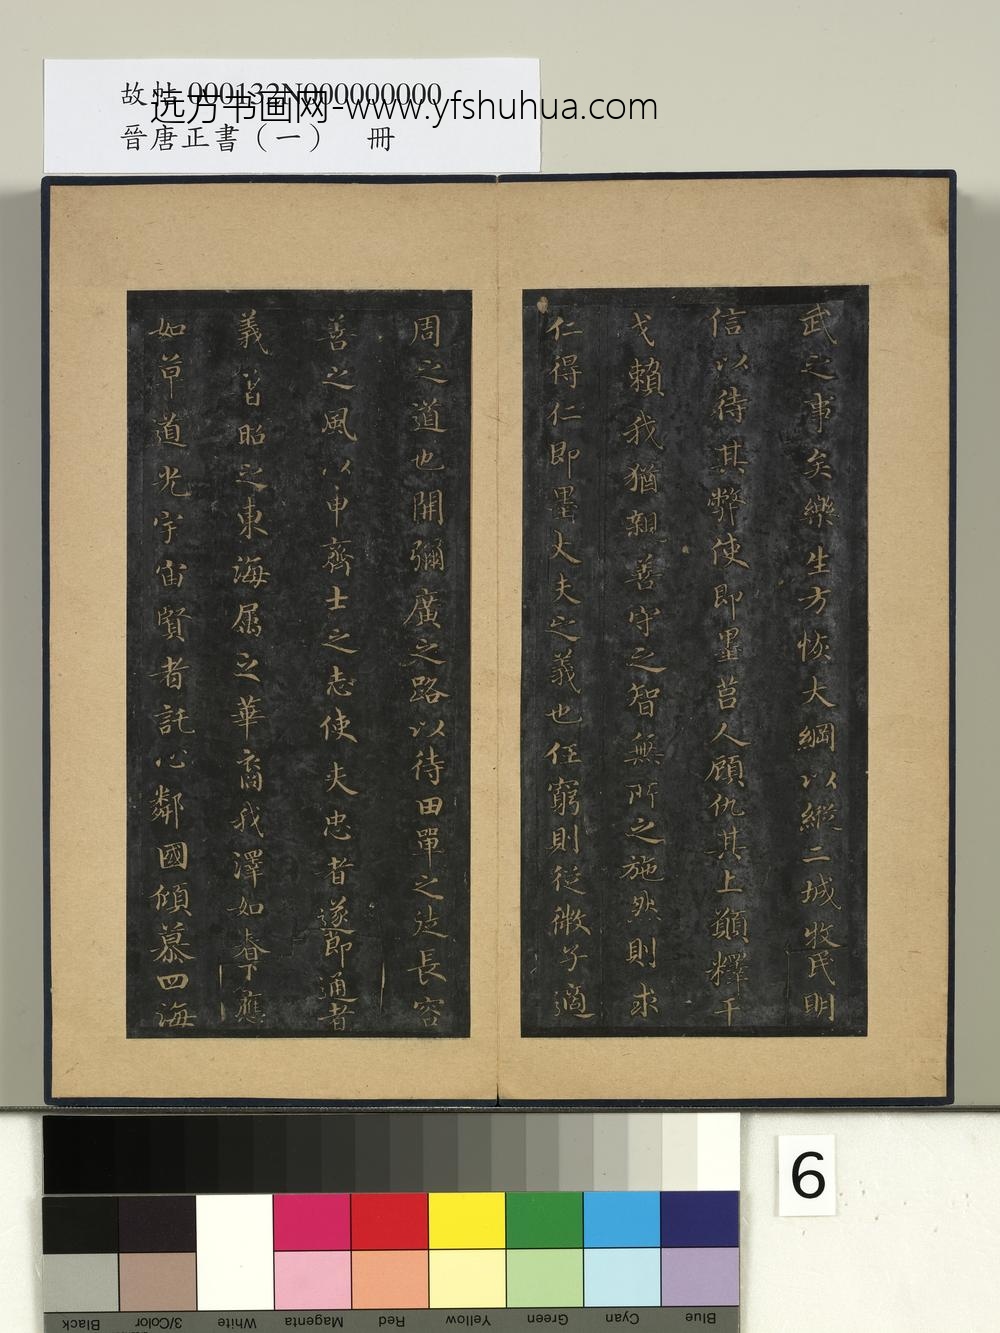 故帖 000132N000000000
远方书画网-www.yfshuhua.com
晉唐正書（一） 冊
武之事矣樂生方恢大綱以縱二城牧民明
信以待其弊使即墨莒人顧仇其上願釋干
戈賴我猶親善守之智無所之施然則求
仁得仁即墨大夫之義也任窮則從微子適
周之道也開彌廣之路以待田單之徒長容
善之風以申齊士之志使夫忠者遂節通者
義著昭之東海属之華裔我澤如春下應
如草道光宇宙賢者託心鄰國傾慕四海
6
Black
3/Color
White
Magenta
Red
Yellow
Green
Cyan
Blue